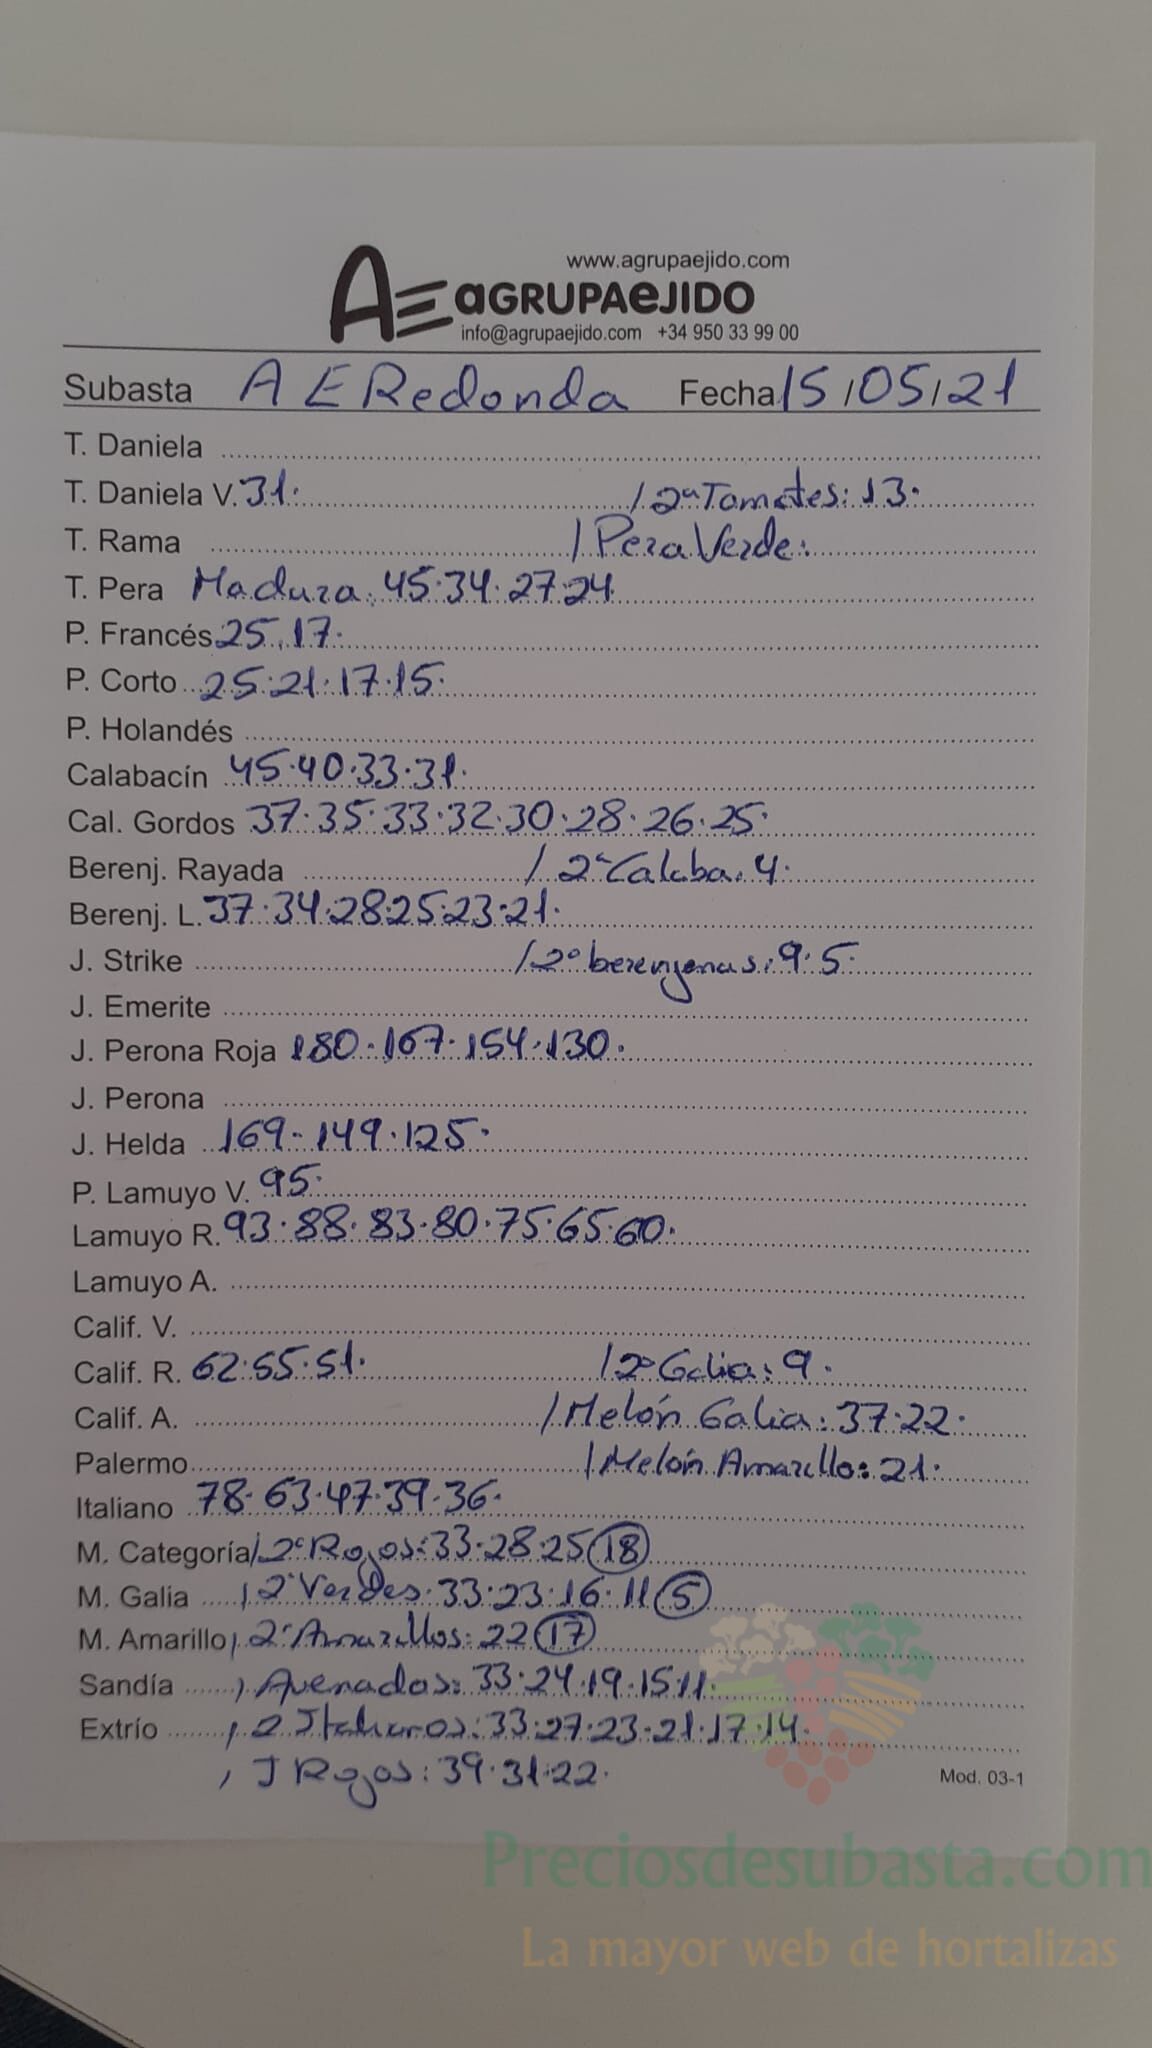 www.agrupaejido.com
AE aGRUPAeJIDO
info@agrupaejido.com +34 950 33 99 00
Subasta A E Redonda Fecha 15/05/21
T. Daniela
T. Daniela V. 31. / 2ª Tomates: 13.
T. Rama / Pera Verde:
T. Pera Madura: 45.34.27.24
P. Francés 25.17.
P. Corto 25.21.17.15.
P. Holandés
Calabacín 45.40.33.31.
Cal. Gordos 37.35.33.32.30.28.26.25.
Berenj. Rayada / 2ª Calaba. 4.
Berenj. L. 37.34.28.25.23.21.
J. Strike / 2º berenjenas: 9.5.
J. Emerite
J. Perona Roja 180.167.154.130.
J. Perona
J. Helda 169.149.125.
P. Lamuyo V. 95.
Lamuyo R. 93.88.83.80.75.65.60.
Lamuyo A.
Calif. V.
Calif. R. 62.55.51. / 2º Galia: 9.
Calif. A. / Melón Galia: 37.22.
Palermo / Melón Amarillo: 21.
Italiano 78.63.47.39.36.
M. Categoría / 2º Rojos: 33.28.25 (18)
M. Galia / 2º Verdes: 33.23.16.11 (5)
M. Amarillo / 2º Amarillos: 22 (17)
Sandía / Avenados: 33.24.19.15.11.
Extrío / 2 Italianos: 33.27.23.21.17.14.
/ J Rojos: 39.31.22.
Mod. 03-1
Preciosdesubasta.com
La mayor web de hortalizas